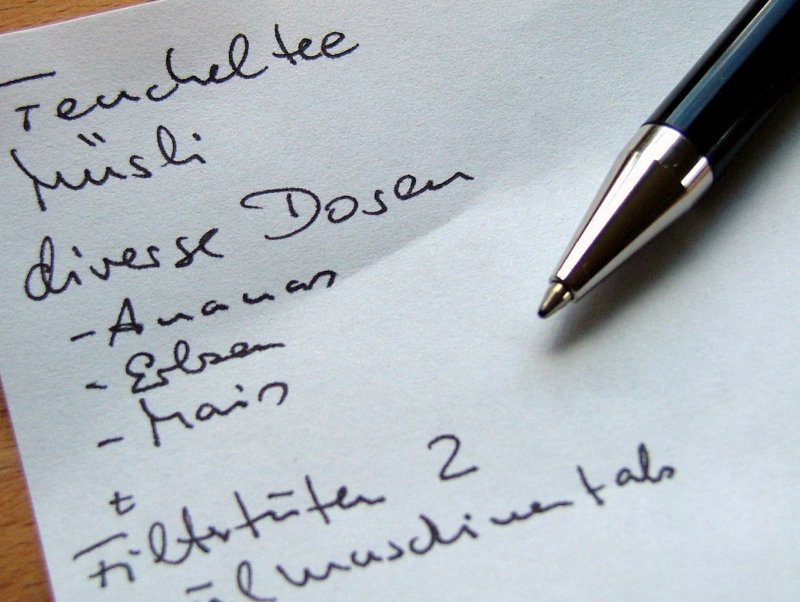 Fencheltee
Müsli
diverse Dosen
- Ananas
- Erbsen
- Mais
t
Filtertüten 2
ülmaschinentabs